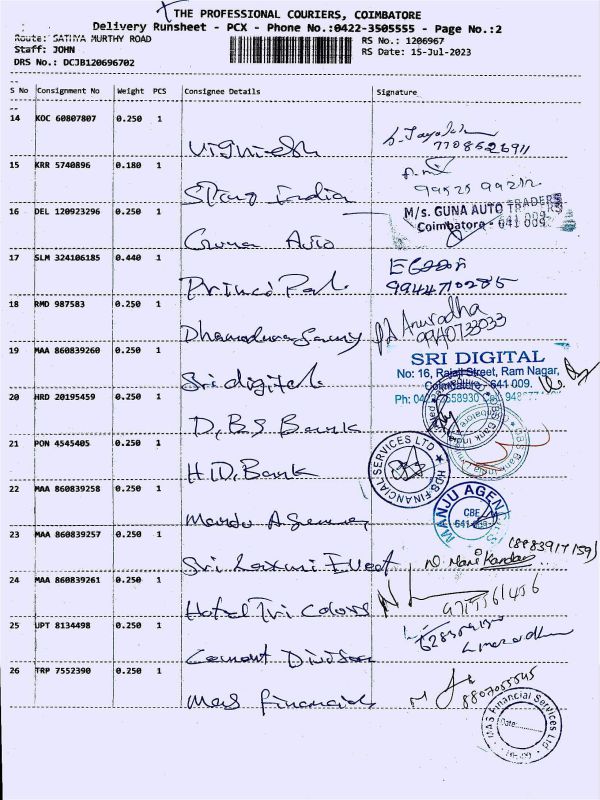 THE PROFESSIONAL COURIERS, COIMBATORE
Delivery Runsheet - PCX - Phone No.:0422-3505555 - Page No.:2
Route: SATHYA MURTHY ROAD
RS No.: 1206967
Staff: JOHN
RS Date: 15-Jul-2023
DRS No.: DCJB120696702
S No Consignment No Weight PCS Consignee Details Signature
14 KOC 60807807 0.250 1 Vignesh
7708526911
15 KRR 5740896 0.180 1 India
99525 99212
16 DEL 120923296 0.250 1 Guna Auto M/s. GUNA AUTO TRADERS
Coimbatore - 641 009
17 SLM 324106185 0.440 1
9944710285
18 RMD 987583 0.250 1 PA Anuradha
9940733033
19 MAA 860839260 0.250 1 Sri digital SRI DIGITAL
No: 16, Rajaji Street, Ram Nagar,
Coimbatore - 641 009.
20 HRD 20195459 0.250 1 D.B.S Bank
21 PON 4545405 0.250 1 H.D. Bank HDS FINANCIAL SERVICES LTD
22 MAA 860839258 0.250 1 MANJU AGEN
CBE
641 009
23 MAA 860839257 0.250 1 Sri Laxmi N. Mani Kandan (8883917159)
24 MAA 860839261 0.250 1 Hotel Tri Colors
25 UPT 8134498 0.250 1 Cement Division
26 TRP 7552390 0.250 1 Mas Financial 8807055545
MAS Financial Services Ltd
Date: